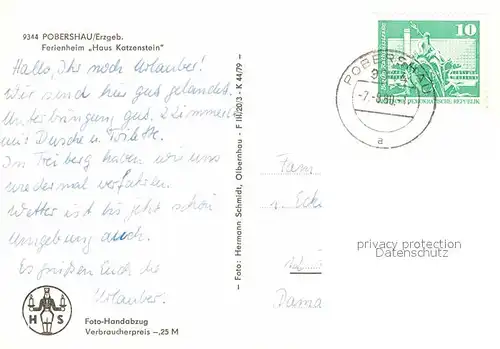 9344 POBERSHAU/Erzgeb.
Ferienheim „Haus Katzenstein"
Hallo, Ihr noch Urlauber!
Wir sind hier gut gelandet.
Unterbringung gut. 2 Zimmer
mit Dusche u. Toilette.
In Freiberg haben wir uns
wieder mal verfahren.
Wetter ist bis jetzt schön
Umgebung auch.
Es grüßen Euch die
Urlauber.
H S
Foto-Handabzug
Verbraucherpreis -,25 M
– Foto: Hermann Schmidt, Olbernhau - F III/20/3 - K 44/79 –
10
DEMOKRATISCHE REPUBLIK
POBERSHAU
a
Fam
u. Eck
Dama
privacy protection
Datenschutz